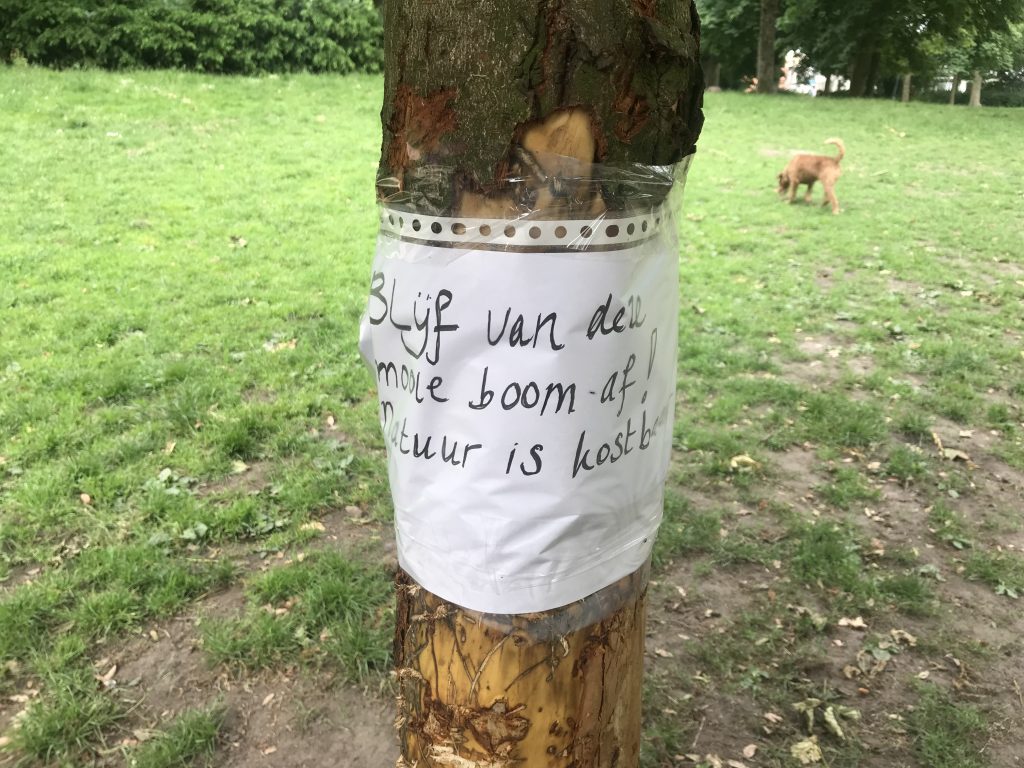 BLijf van deze
mooie boom af!
Natuur is kostbaar